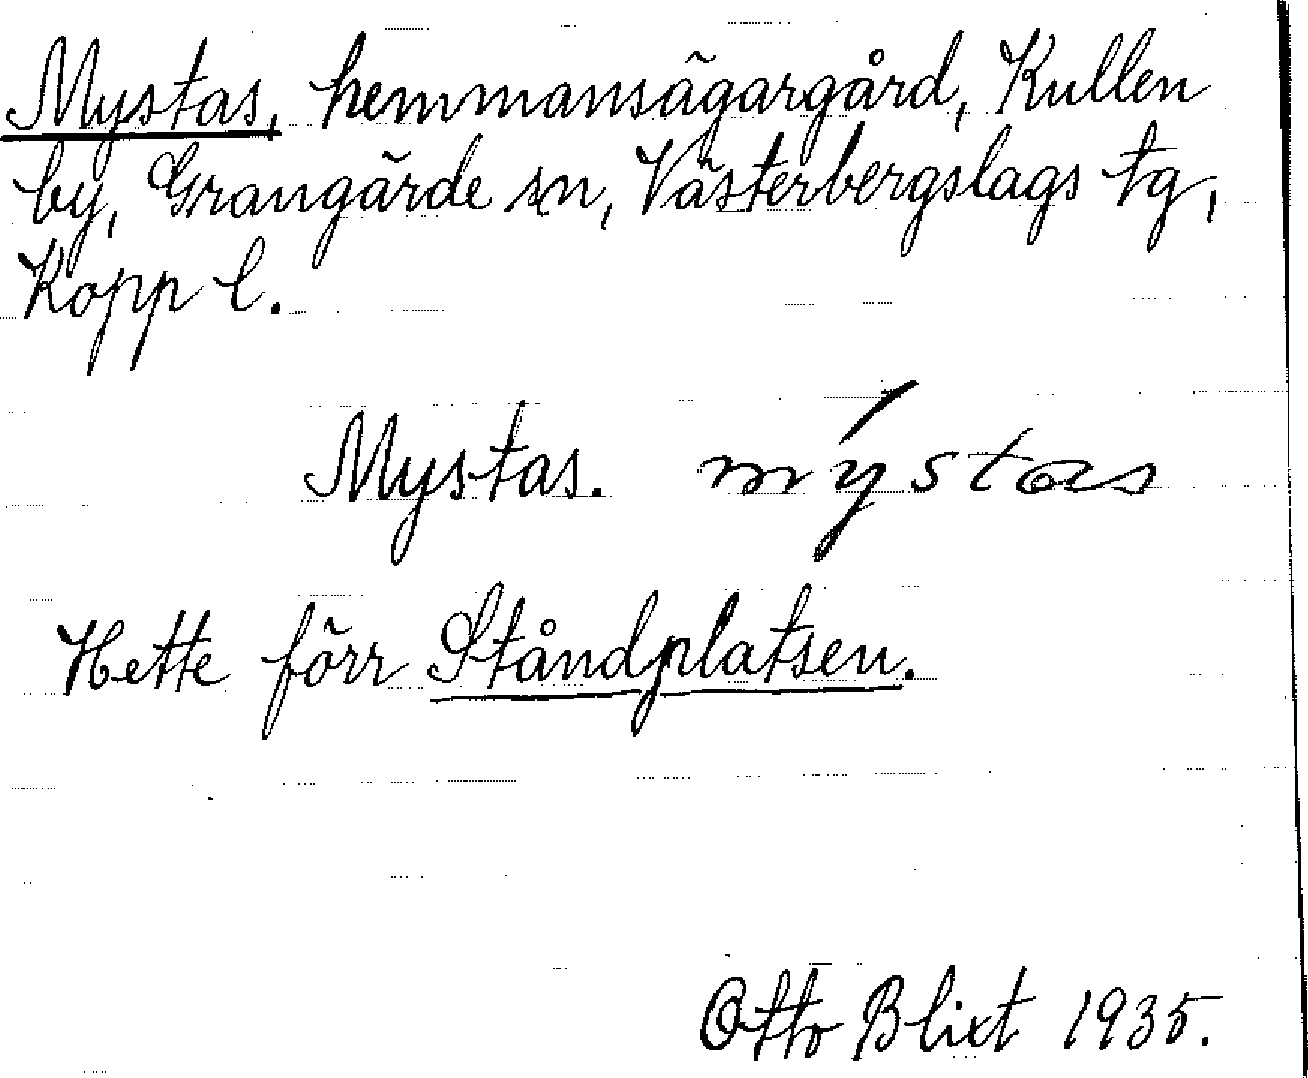 Mystas, hemmansägargård, Kullen
by, Grangärde sn, Västerbergslags tg,
Kopp l.
Mystas. mýstas
Hette förr Ståndplatsen.
Otto Blixt 1935.